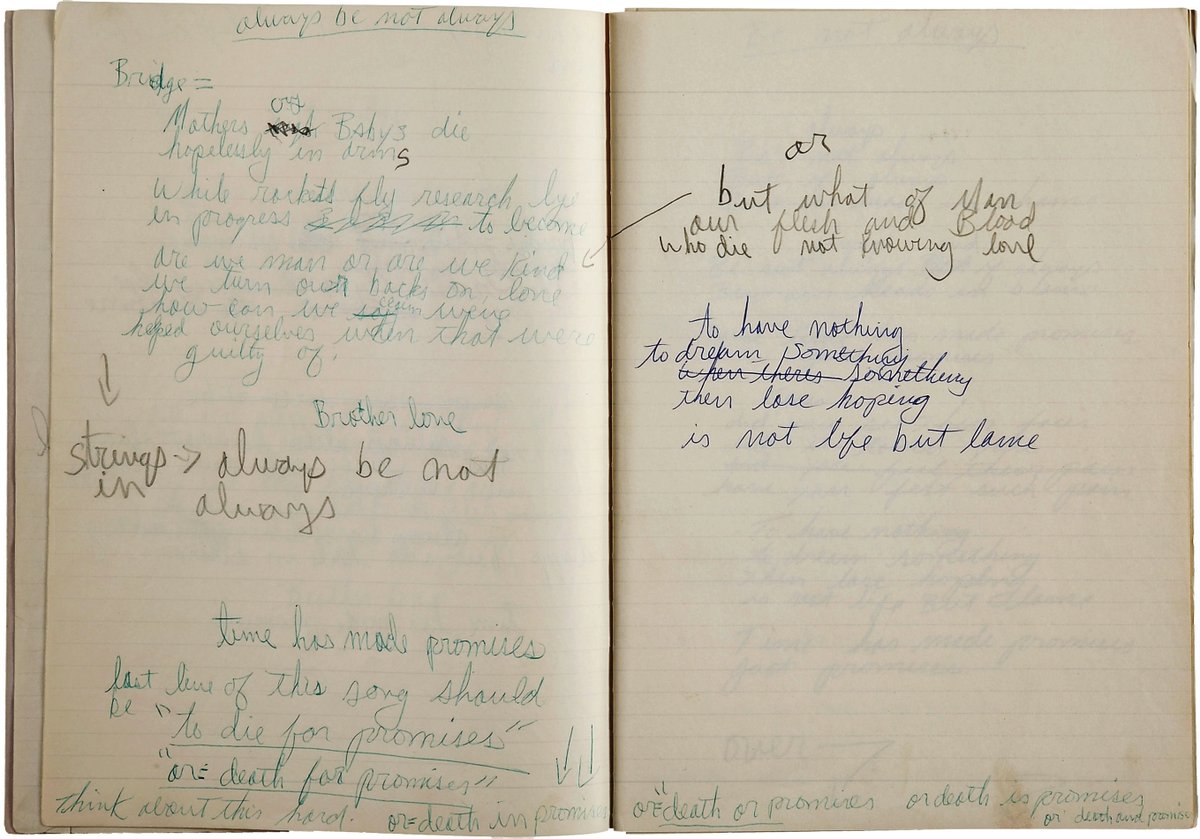 always be not always
Bridge =
or
Mothers Babys die
hopelessly in arms
while rockets fly research lye
in progress to become
are we man or are we kind
we turn our backs on, love
how can we claim weve
helped ourselves when that were
guilty of.
Brother love
strings → always be not
in always
time has made promises
last line of this song should
be "to die for promises"
"or= death for promises"
think about this hard. or= death in promises
or
but what of Man
our flesh and Blood
who die not knowing love
to have nothing
to dream something
when theres something
then lose hoping
is not life but lame
or="death or promises or death is promises
or death and promise
Be not always
To have nothing
to dream something
then lose hoping
is not life but lame
Time has made promises
just promises
over